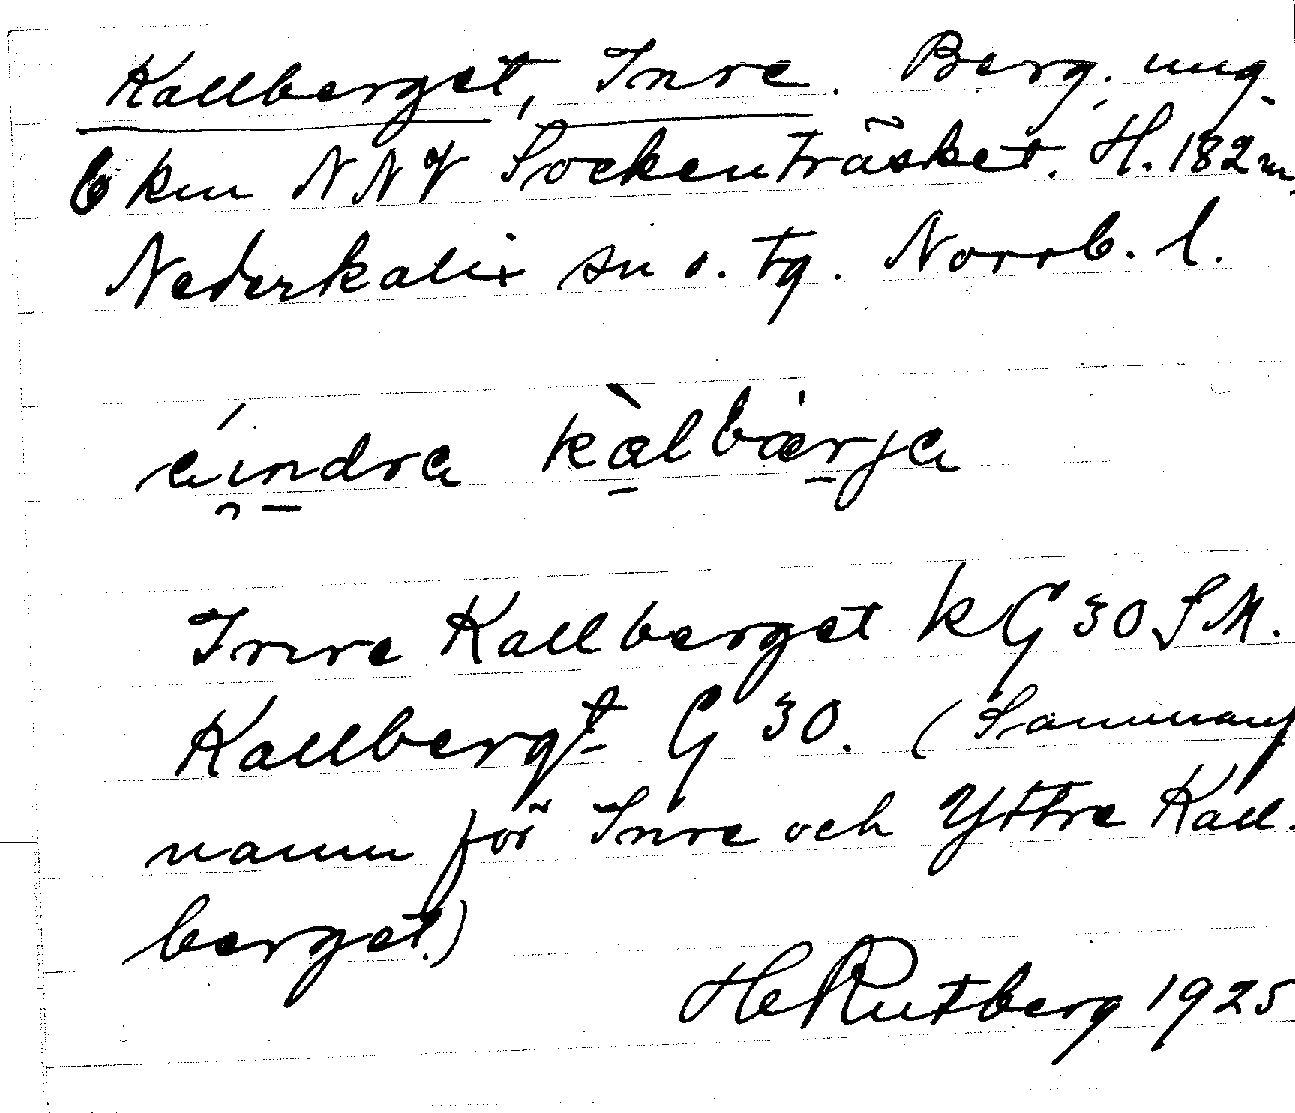 Kallberget, Inre. Berg. ung.
6 km NNV Sockenträsket. H. 182 m.
Nederkalix sn o. tg. Norrb. l.
Inre Kallberget k G 30 SM.
Kallbergt G 30. (Samman-
namn för Inre och Yttre Kall-
berget.)
H Rutberg 1925